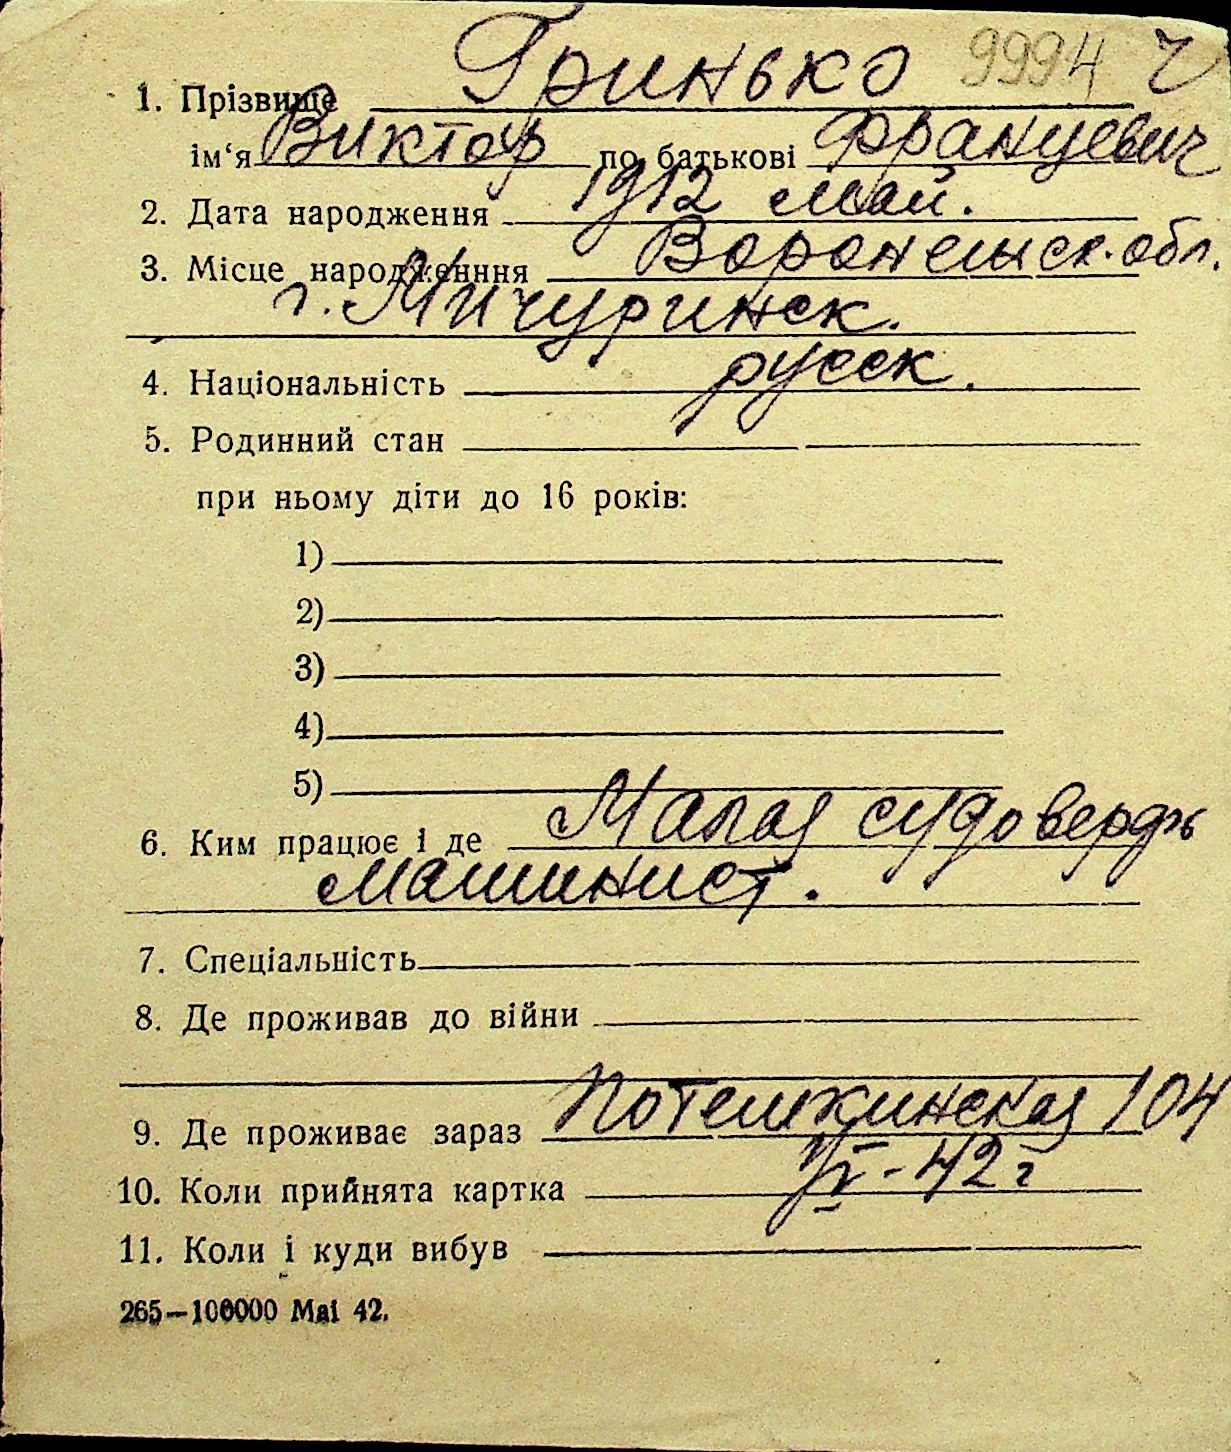 9994 ч
1. Прізвище Гринько
ім‘я Виктор по батькові Францевич
2. Дата народження 1912 май.
3. Місце народженння Воронежск. обл.
г. Мичуринск.
4. Національність русск.
5. Родинний стан
при ньому діти до 16 років:
1)
2)
3)
4)
5)
6. Ким працює і де Малая судоверфь
машинист.
7. Спеціальність
8. Де проживав до війни
9. Де проживає зараз Потемкинская 104
10. Коли прийнята картка -42 г
11. Коли і куди вибув
265—100000 Mai 42.